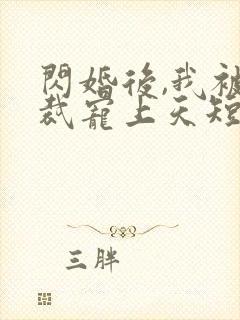 閃婚後,我被
裁寵上天短
三胖